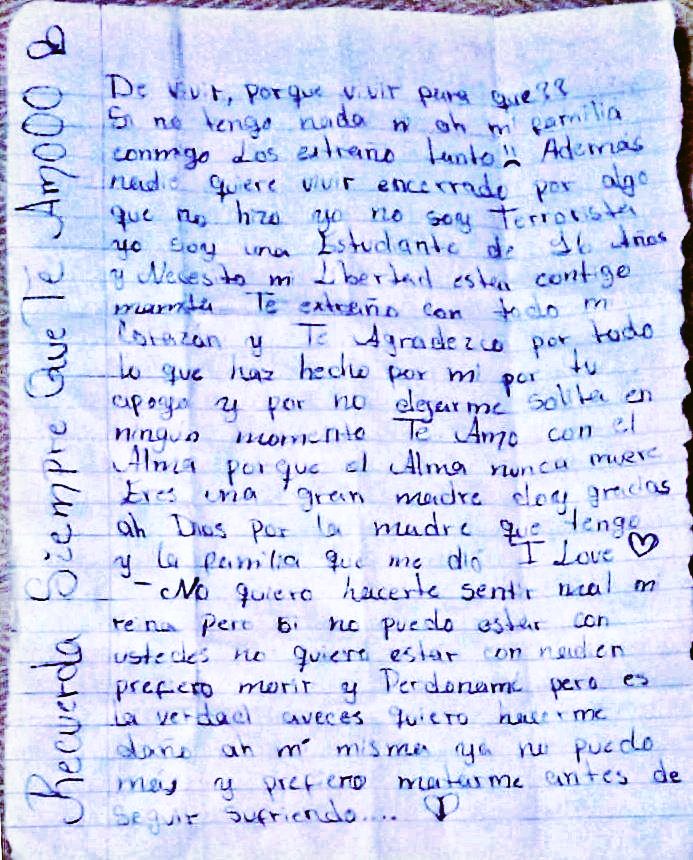 De vivir, porque vivir para que??
Si no tengo nada ni ah mi familia
conmigo Los extraño tanto!! Ademas
nadie quiere vivir encerrado por algo
que no hizo yo no soy Terrorista
yo soy una Estudiante de 16 Años
y Necesito mi Libertad estar contigo
mamita Te extraño con todo mi
Corazón y Te Agradezco por todo
lo que haz hecho por mi por tu
apoyo y por no dejarme solita en
ningun momento Te Amo con el
Alma porque el Alma nunca muere
Eres una gran madre doy gracias
ah Dios por la madre que tengo
y la familia que me dio I Love ♡
- No quiero hacerte sentir mal mi
reina pero si no puedo estar con
ustedes no quiero estar con nadien
prefiero morir y Perdoname pero es
la verdad aveces quiero hacerme
daño ah mi misma ya no puedo
mas y prefiero matarme antes de
seguir sufriendo.... ♡
Recuerda Siempre Que Te Amooo